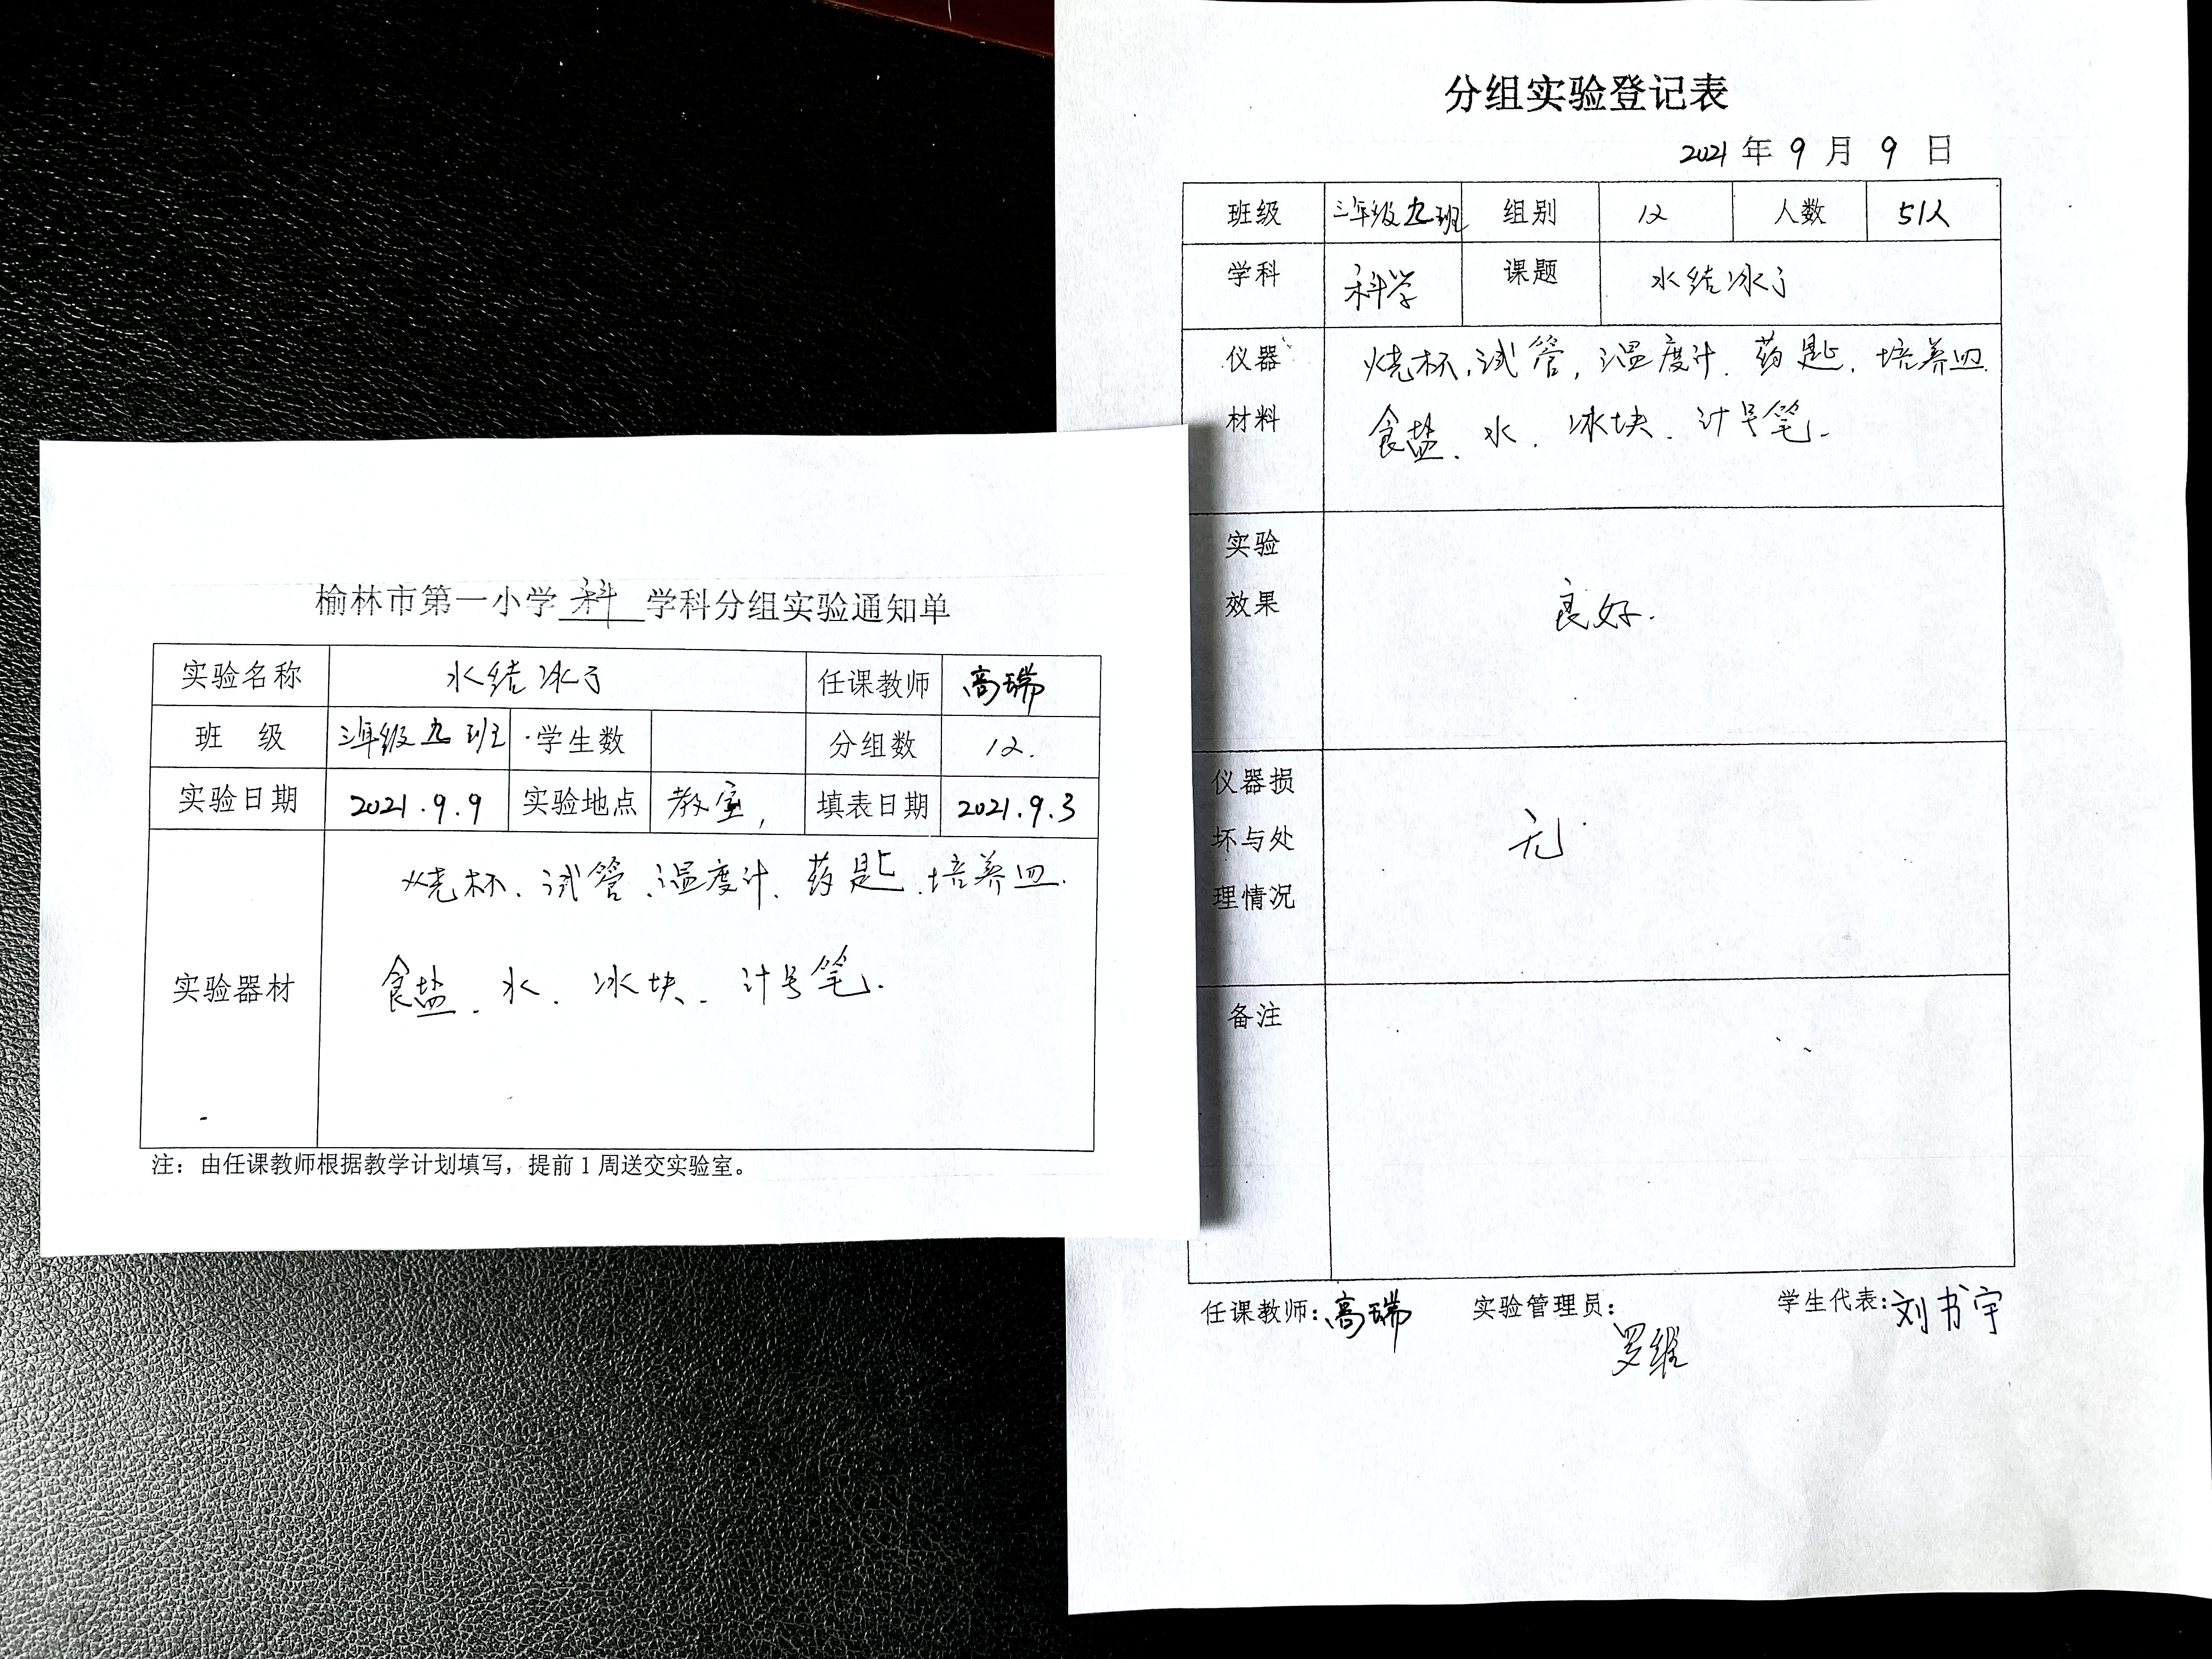 榆林市第一小学 科 学科分组实验通知单
实验名称 水结冰了 任课教师 高瑞
班 级 三年级九班 学生数 分组数 12.
实验日期 2021.9.9 实验地点 教室, 填表日期 2021.9.3
烧杯、试管、温度计、药匙、培养皿.
实验器材 食盐、水、冰块、计号笔.
注：由任课教师根据教学计划填写，提前1周送交实验室。
分组实验登记表
2021 年 9 月 9 日
班级 三年级九班 组别 12 人数 51人
学科 科学 课题 水结冰了
仪器 烧杯,试管,温度计、药匙、培养皿.
材料 食盐、水、冰块、计号笔.
实验
效果 良好.
仪器损
坏与处 无.
理情况
备注
任课教师：高瑞 实验管理员： 学生代表：刘书宇
罗维